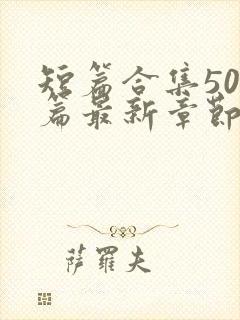 短篇合集50
篇最新章節
萨羅夫